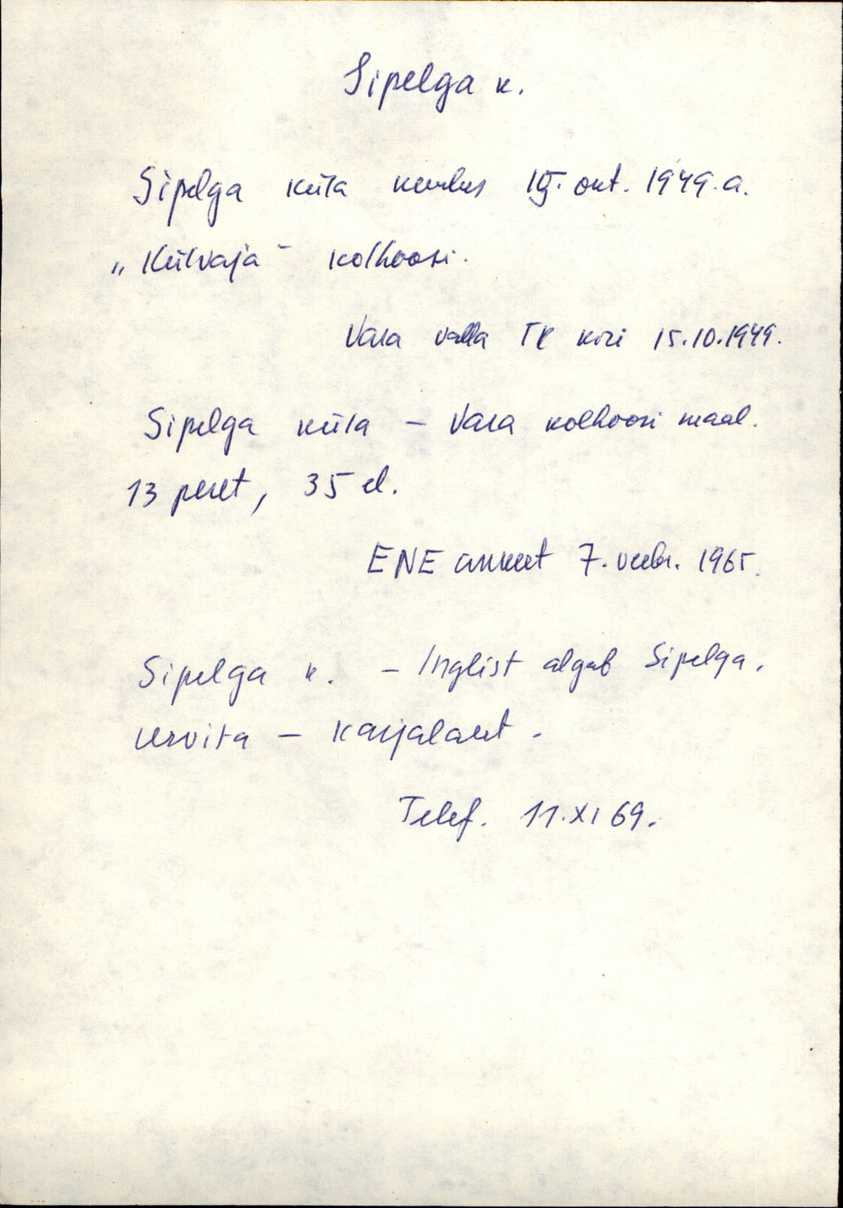 Sipelga k.
Sipelga küla kuulus 15. okt. 1949.a.
„Külvaja" kolhoosi.
Vara valla TK kiri 15.10.1949.
Sipelga küla – Vara kolhoosi maal.
13 peret, 35 el.
ENE ankeet 7. veebr. 1965.
Sipelga k. – Inglist algab Sipelga.
– Karjalaut.
Telef. 11.XI 69.